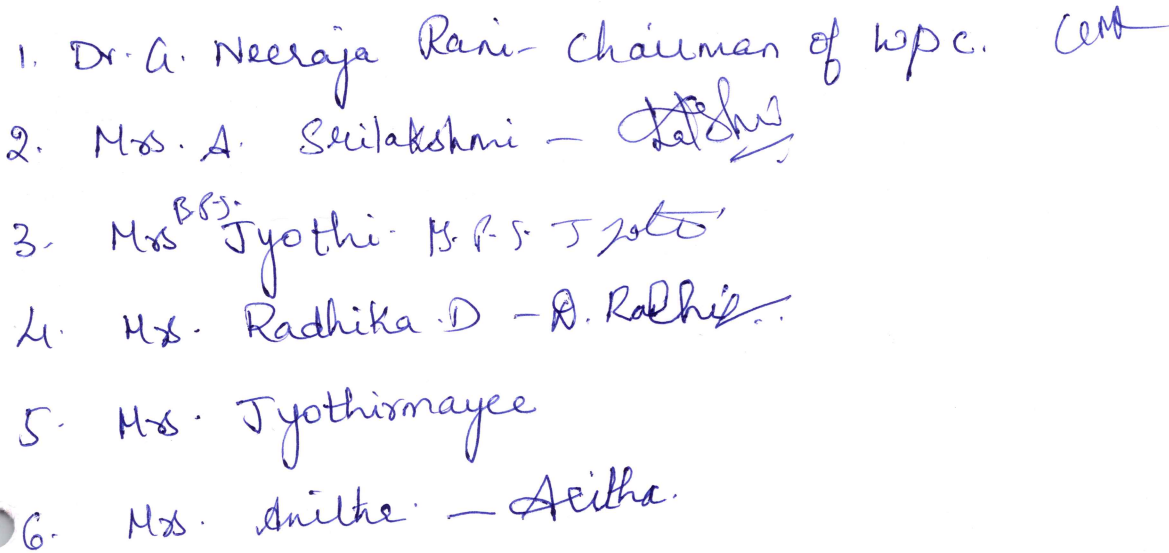 1. Dr. G. Neeraja Rani - Chairman of WPC.
2. Mrs. A. Srilakshmi -
3. Mrs B.P.S. Jyothi -
4. Mrs. Radhika .D - D. Radhi
5. Mrs. Jyothirmayee
6. Mrs. Anitha. - Anitha.